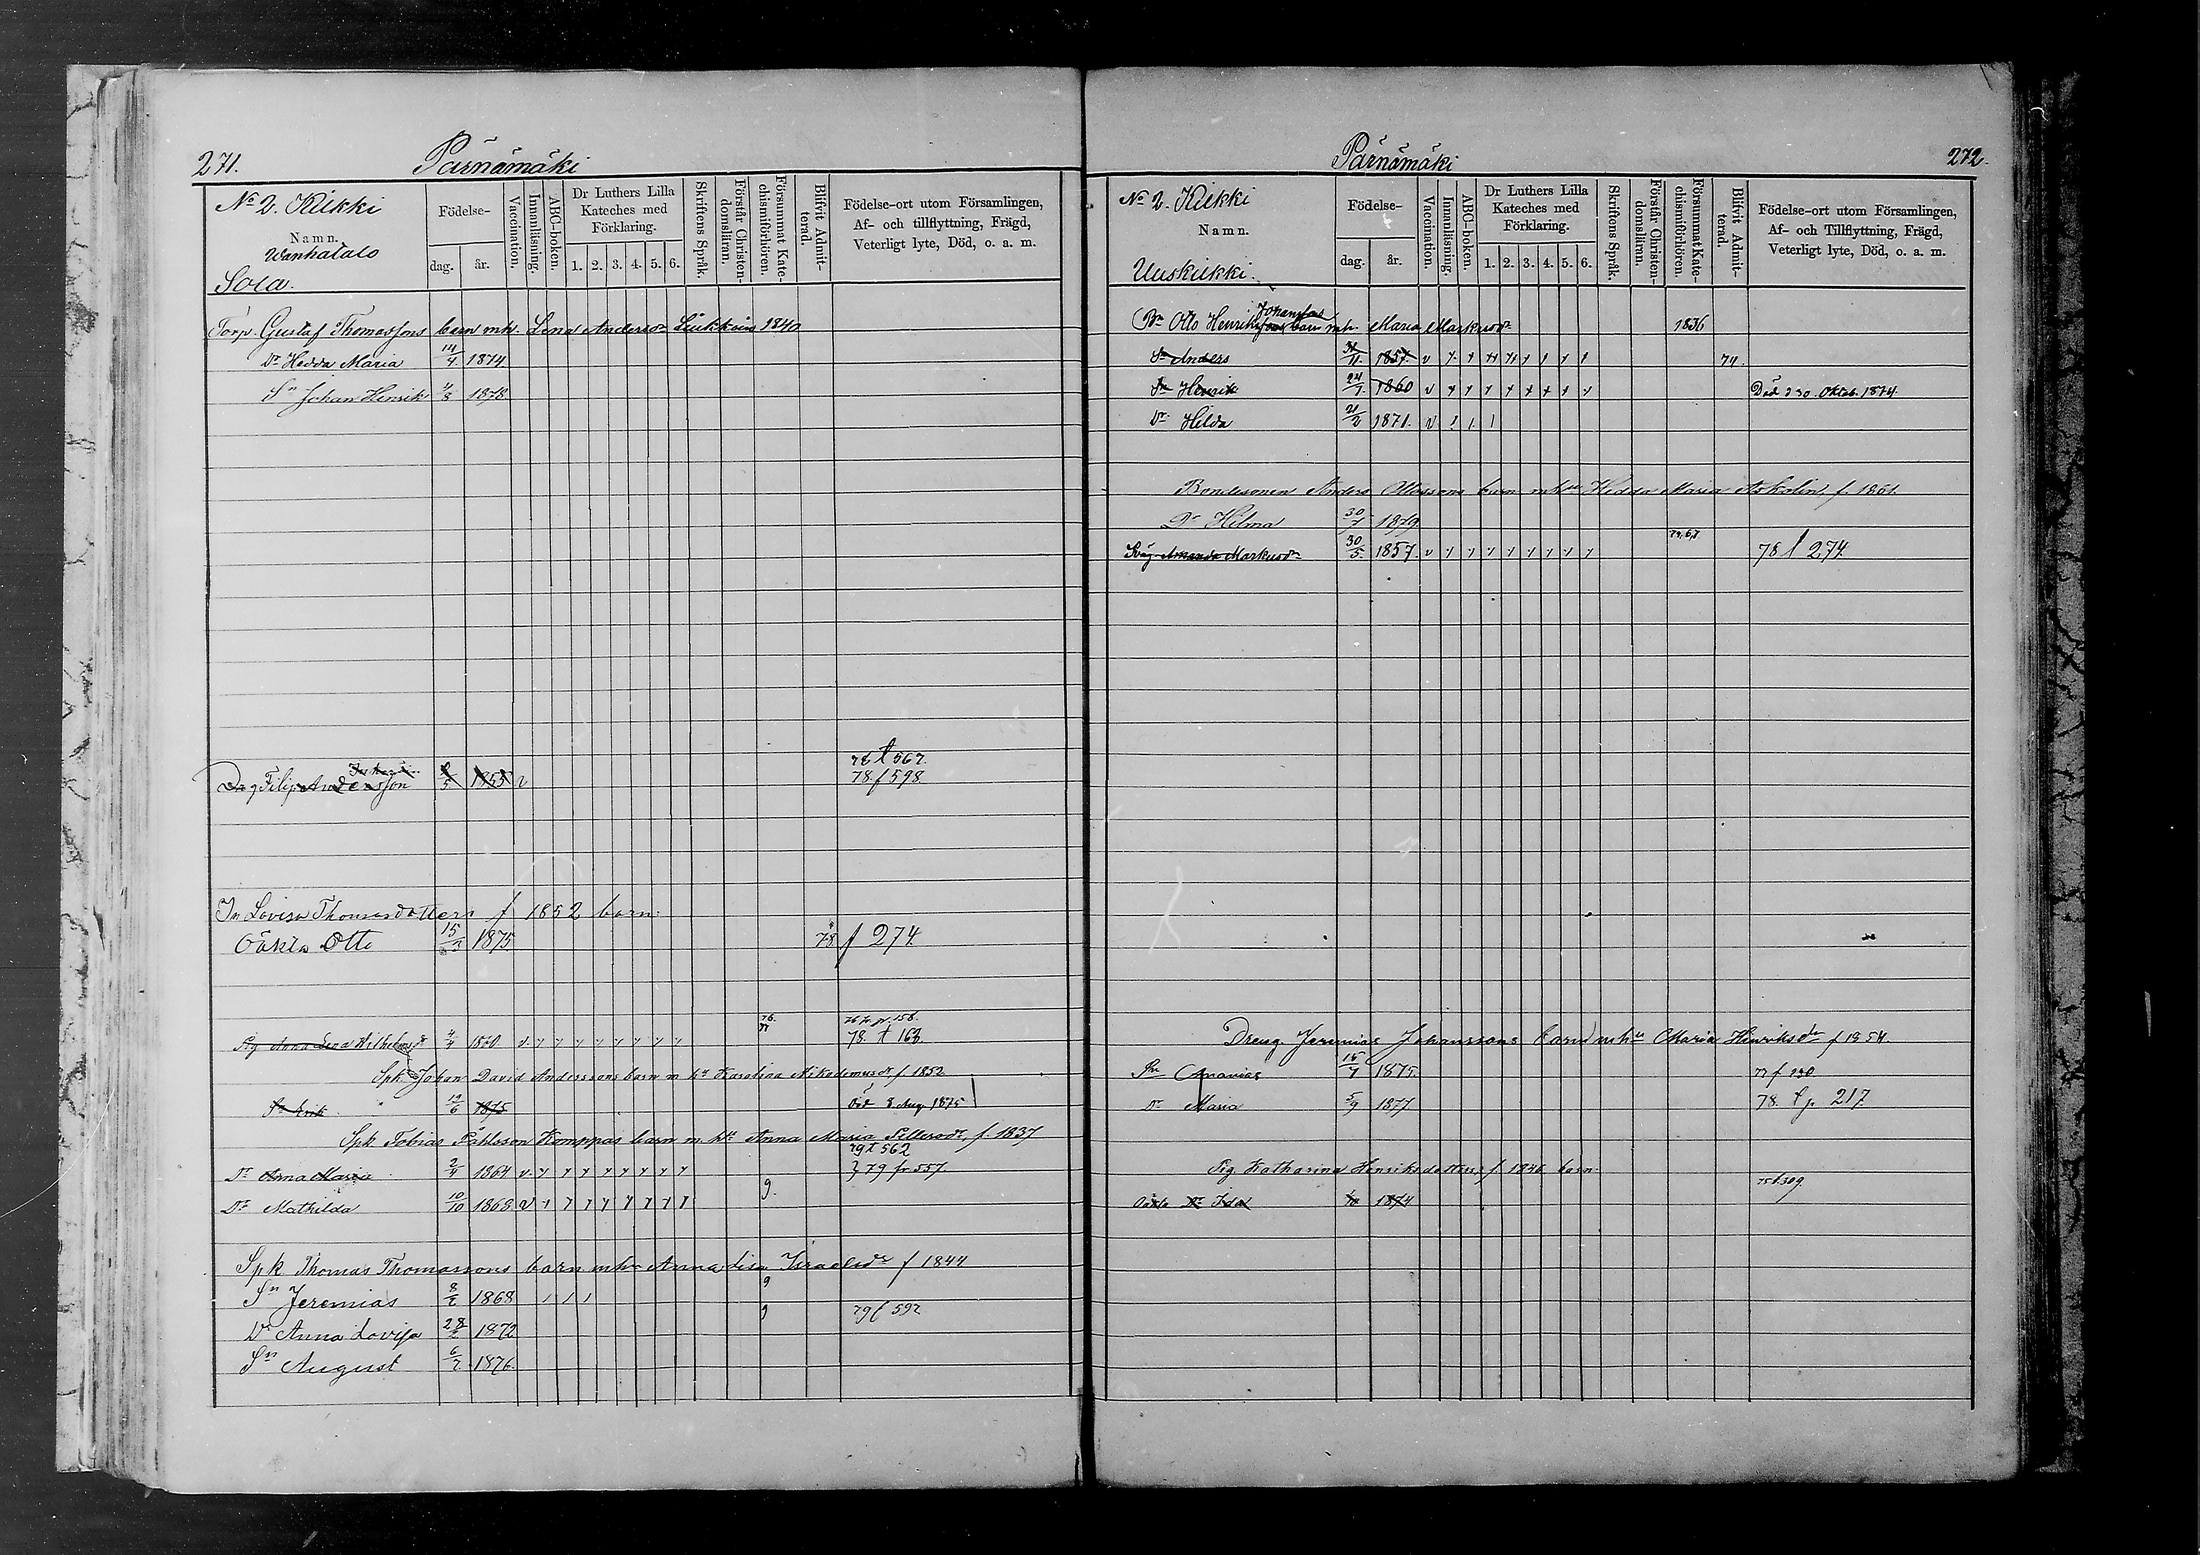 271. Pärnämäki
No 2. Kiikki
Namn.
Wanhatalo
Sola.
Födelse-
dag. år.
Vaccination.
Innanläsning.
ABC-boken.
Dr Luthers Lilla
Kateches med
Förklaring.
1. 2. 3. 4. 5. 6.
Skriftens Språk.
Förstår Christen-
domslärnn.
Försummat Kate-
chismiförhören.
Blifvit Admit-
terad.
Födelse-ort utom Församlingen,
Af- och tillflyttning, Frägd,
Veterligt lyte, Död, o. a. m.
Torp. Gustaf Thomassons barn mh. Lena Andersdr Liukkuin 1840
Dr Hedda Maria 14/4 1874
Sn Johan Henrik 4/8 1878
78 t 567.
Dag Filip Andersson 5 1855 v 78. f 598
In Lovisa Thomasdotters f 1852 barn:
Oäkta Otto 15 1875 78 f 274
76. 158.
Pig Anna Lena Wilhelmsdr 4/4 1860 v 78. t 163.
Spk Johan David Anderssons barn m. ht Karolina Nikodemusdr f 1852
Sn Erik 19/6 1875 Död 8 Aug. 1875
Spk Tobias Påhlsson Komppas barn m. ht Anna Maria f. 1837
79 t 562
Dr Anna Maria 2/4 1864 v 79 fr 557
9.
Dr Mathilda 10/10 1868 v
Spk Thomas Thomassons barn mhu Anna Lisa Israelsdr f 1844
9
Sn Jeremias 8/2 1868
9 79 f 592
Dr Anna Lovisa 28/2 1872
Sn August 6/7 1876
Pärnämäki 272.
No 2. Kiikki
Namn.
Uuskiikki.
Födelse-
dag. år.
Vaccination.
Innanläsning.
ABC-boken.
Dr Luthers Lilla
Kateches med
Förklaring.
1. 2. 3. 4. 5. 6.
Skriftens Språk.
Förstår Christen-
domslärnn.
Försummat Kate-
chismiförhören.
Blifvit Admit-
terad.
Födelse-ort utom Församlingen,
Af- och Tillflyttning, Frägd,
Veterligt lyte, Död, o. a. m.
Johansons
Bn Otto Henrikssons barn mh. Maria Markusdr 1836
Sn Anders 11. 1857. v 74.
Sn Henrik 24/7. 1860 v Död d 30. Oktob. 1874.
Dr Hilda 21/2 1871. v
Bondesonen Anders Ottossons barn mhu Hedda Maria Askolin, f. 1861.
Dr Hilma 30/7 1879.
Swäg Amanda Markusdr 30/5. 1857. v 78 f 274.
Dreng Jeremias Johanssons barn mhu Maria Henriksdr f 1854.
Sn Ananias 15/7 1875. 77 f 230.
Dr Maria 5/9 1877. 78. f p. 217.
Pig. Katharina Henriksdotters f. 1846 barn.
75 t 309.
Oäkta Dr Ida 10 1874